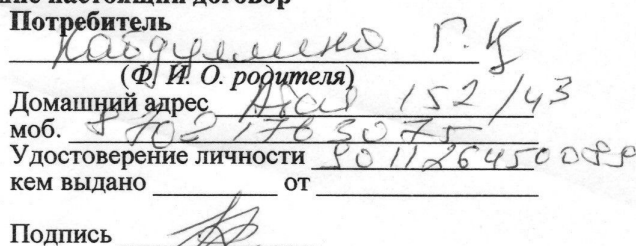 ние настоящий договор
Потребитель
Хабдуллина Г. К
(Ф. И. О. родителя)
Домашний адрес Абая 152/43
моб. 8 702 1763075
Удостоверение личности 901126450089
кем выдано от
Подпись